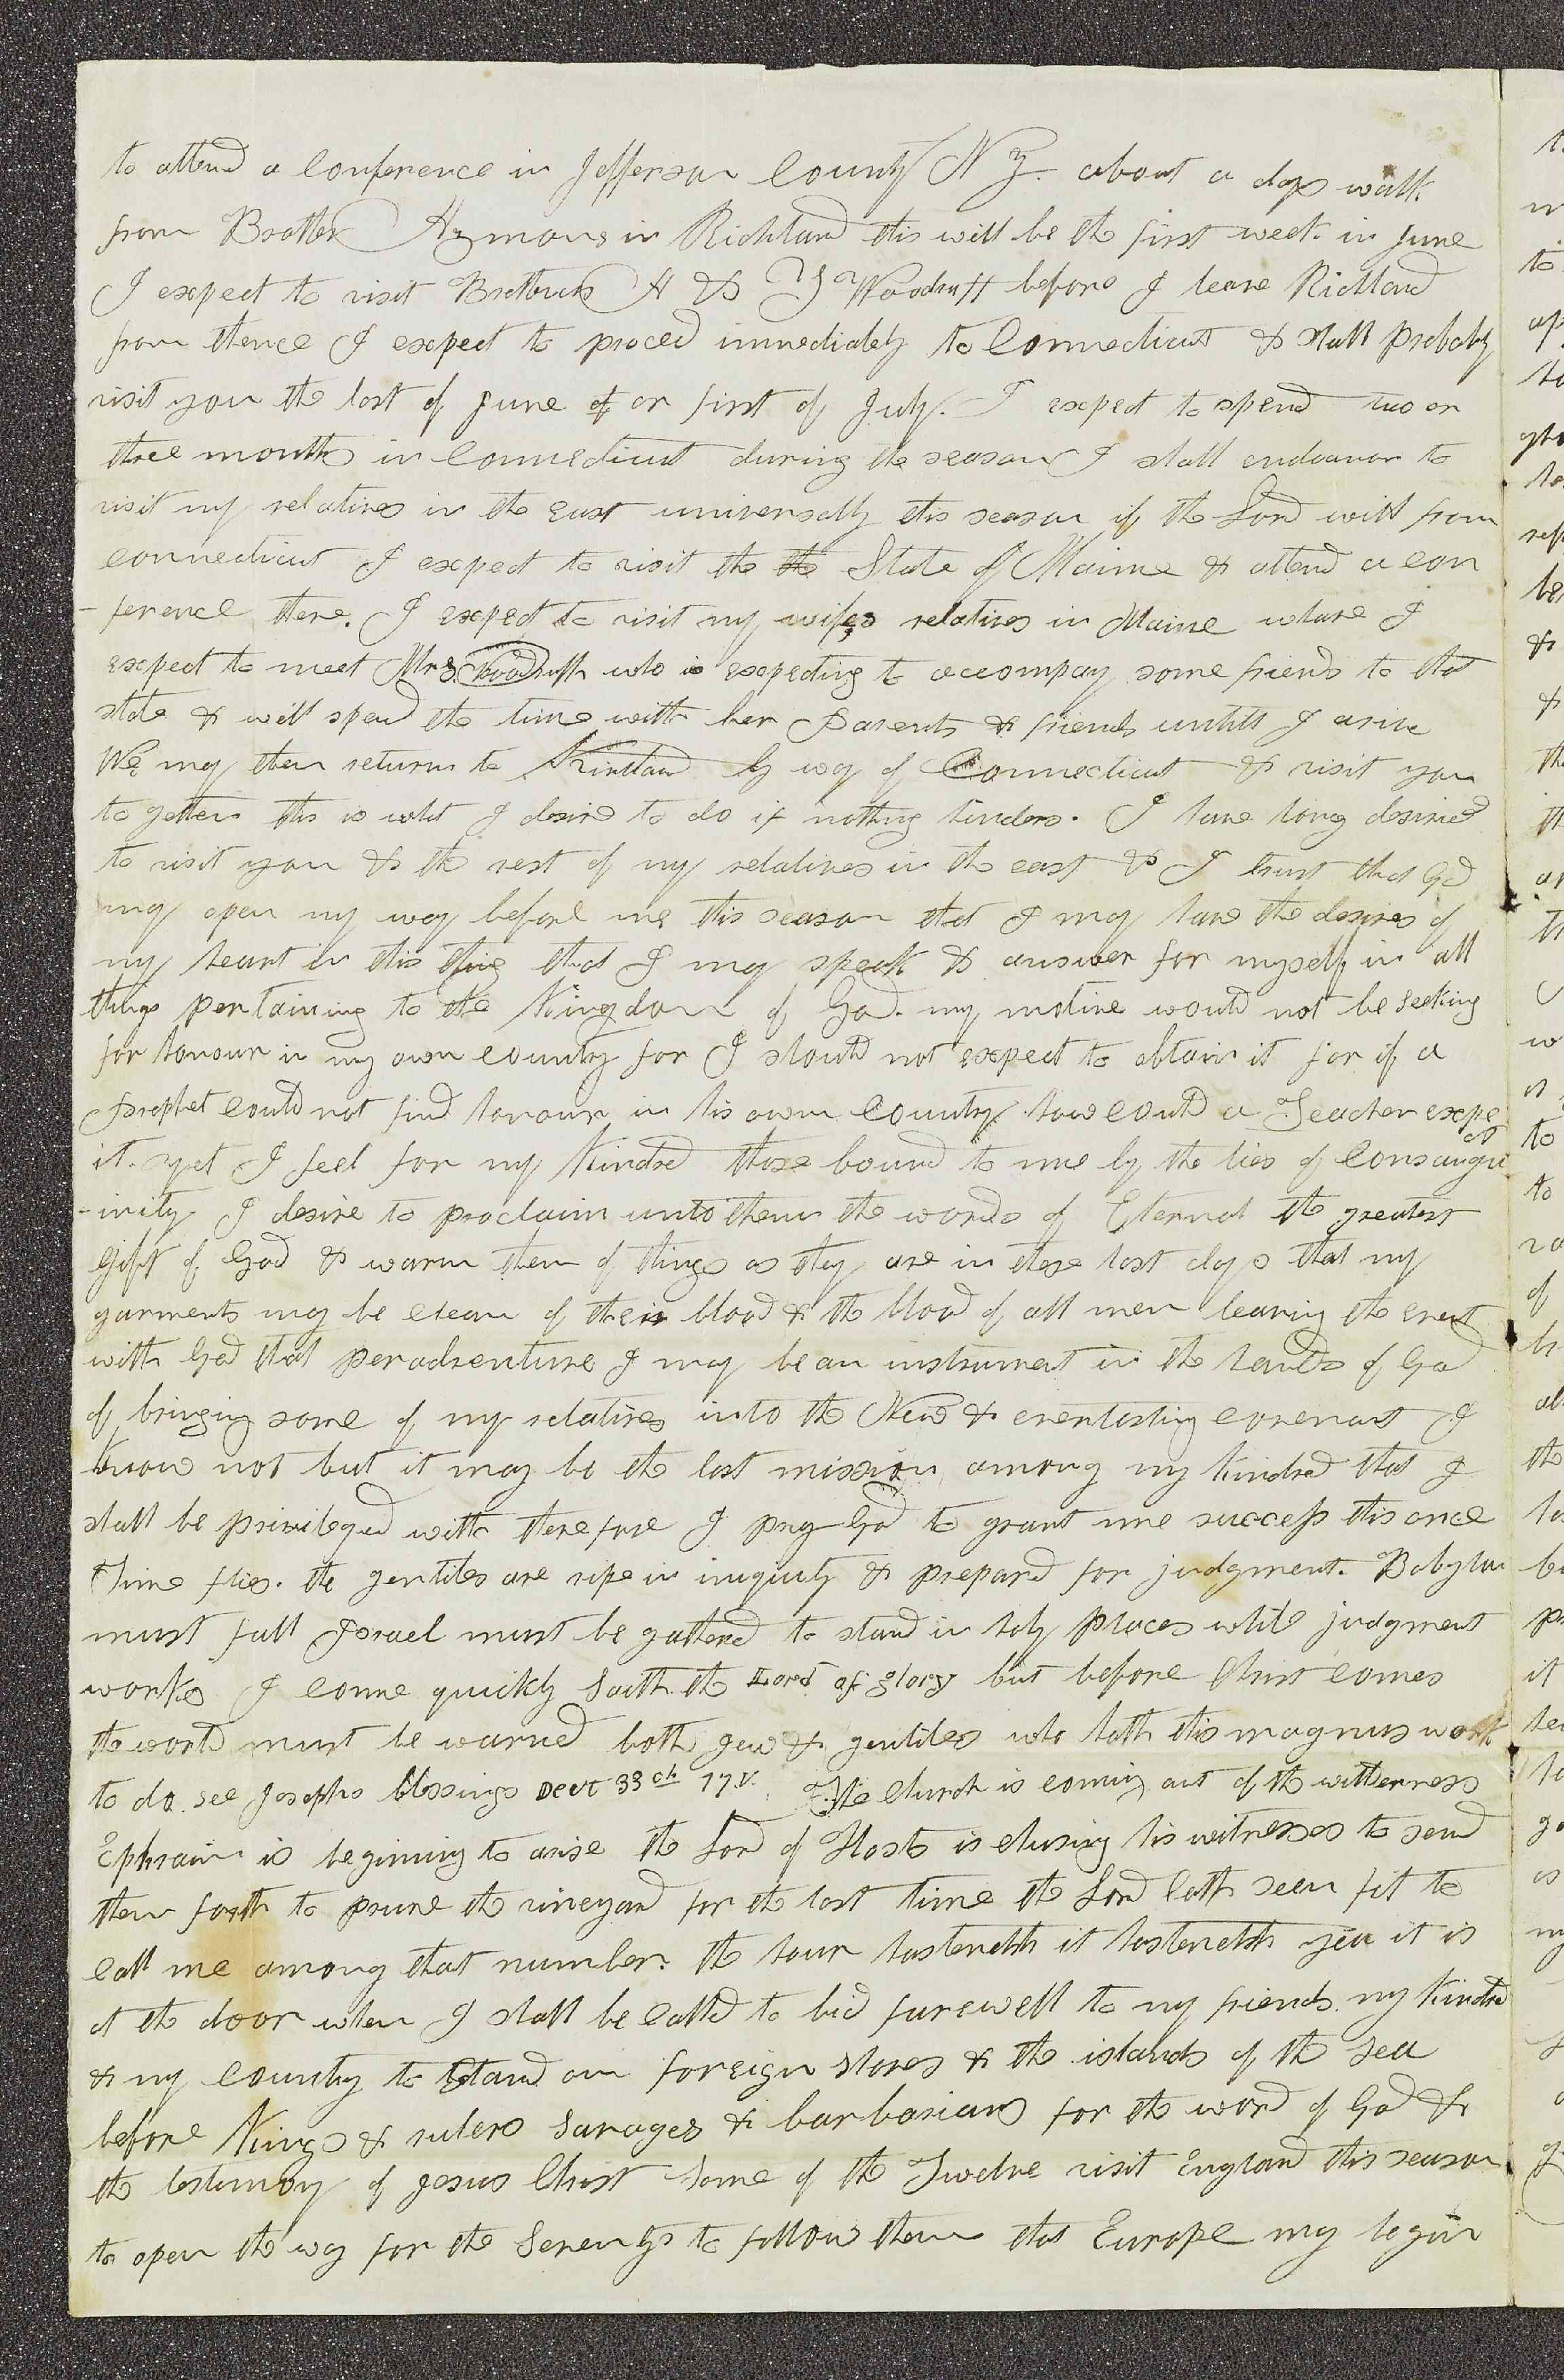 to attend a conference in Jefferson County N Y. about a days walk
from Brother Azmons in Richland this will be the first week in June
I expect to visit Brothers A & Y Woodruff before I leave Richland
from thence I expect to proced immediately to Connecticut & shall probably
visit you the last of June of or first of July. I expect to spend two or
three months in Connecticut during the season I shall endeavor to
visit my relatives in the east universally this season if the Lord will from
connecticut I expect to visit the the State of Maine & attend a con
-ference there. I expect to visit my wifes relatives in Maine whare I
expect to meet Mrs. Woodruff who is expecting to accompay some friends to that
state & will spend the time with her Parents & friends untill I arive
We may then return to Kirtland by way of Connecticut & visit you
to gether this is what I desire to do if nothing hinders. I have long desired
to visit you & the rest of my relatives in the east & I trust that God
may open my way before me this season that I may have the desires of
my heart in this thing that I may speak & answer for myself in all
things pertaining to the Kingdom of God. my motive would not be seeking
for honour in my own country for I should not expect to obtain it for if a
Prophet could not find honour in his own Country how could a Teacher expect
it. yet I feel for my Kindred those bound to me by the ties of Consangu
-inity I desire to proclaim unto them the words of Eternal the greatest
gift of God & warn them of things as they are in these last days that my
garments may be clean of their blood & the blood of all men leaving the event
with God that peradventure I may be an instrument in the hands of God
of bringing some of my relatives into the New & everlasting covenant I
know not but it may be the last mission among my Kindred that I
shall be privileged with therefore I pray God to grant me success this once
Time flies. the gentiles are ripe in iniquity & prepared for judgment. Babylon
must fall Israel must be gathered to stand in holy places while judgment
works I come quickly Saith the Lord of glory but before Christ comes
the world must be warned both jew & gentiles who hath this magnus work
to do. see Josephs blessings Deut 33 ch 17 v. The Church is coming out of the wilderness
Ephraim is begining to arise the Lord of Hosts is chusing his witnesses to send
them forth to prune the vineyard for the last time the Lord hath seen fit to
call me among that number. the hour hasteneth it hasteneth yea it is
at the door when I shall be called to bid farewell to my friends. my Kindred
& my country to stand on foreign shores & the islands of the sea
before Kings & rulers Savages & barbarians for the word of God &
the testimony of Jesus Christ Some of the Twelve visit England this season
to open the way for the Seventys to follow them that Europe may begin